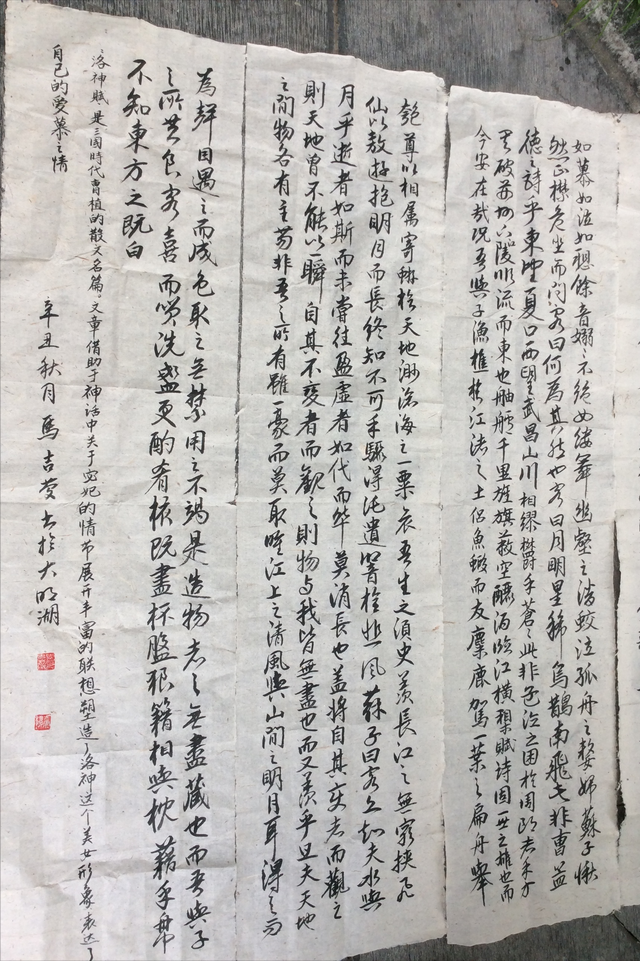 如慕如泣如想餘音嫋嫋不絕如縷舞幽壑之潛蛟泣孤舟之嫠婦蘇子愀
然正襟危坐而問客曰何為其然也客曰月明星稀烏鵲南飛此非曹孟
德之詩乎東望夏口西望武昌山川相繆欝乎蒼々此非孟德之困於周郎者乎方
其破荊州下陵順流而東也舳艫千里旌旗蔽空釃酒臨江橫槊賦詩固一世之雄也而
今安在哉況吾與子漁樵於江渚之上侶魚蝦而友麋鹿駕一葉之扁舟舉
匏尊以相屬寄於天地渺滄海之一粟哀吾生之須臾羨長江之無窮挾飛
仙以遨遊抱明月而長終知不可乎驟得託遺響於悲風蘇子曰客亦知夫水與
月乎逝者如斯而未嘗往盈虛者如代而卒莫消長也蓋將自其變者而觀之
則天地曾不能以一瞬自其不變者而觀之則物与我皆無盡也而又羨乎且夫天地
之間物各有主苟非吾之所有雖一毫而莫取唯江上之清風與山間之明月耳得之而
為聲目遇之而成色取之無禁用之不竭是造物者之無盡藏也而吾與子
之所共食客喜而笑洗盞更酌肴核既盡杯盤狼籍相與枕藉乎舟
不知東方之既白
洛神賦是三國時代曹植的散文名篇。文章借助于神话中关于宓妃的情节展开丰富的联想塑造了洛神这个美女形象表达了
自己的愛慕之情
辛丑秋月馬吉書于大明湖